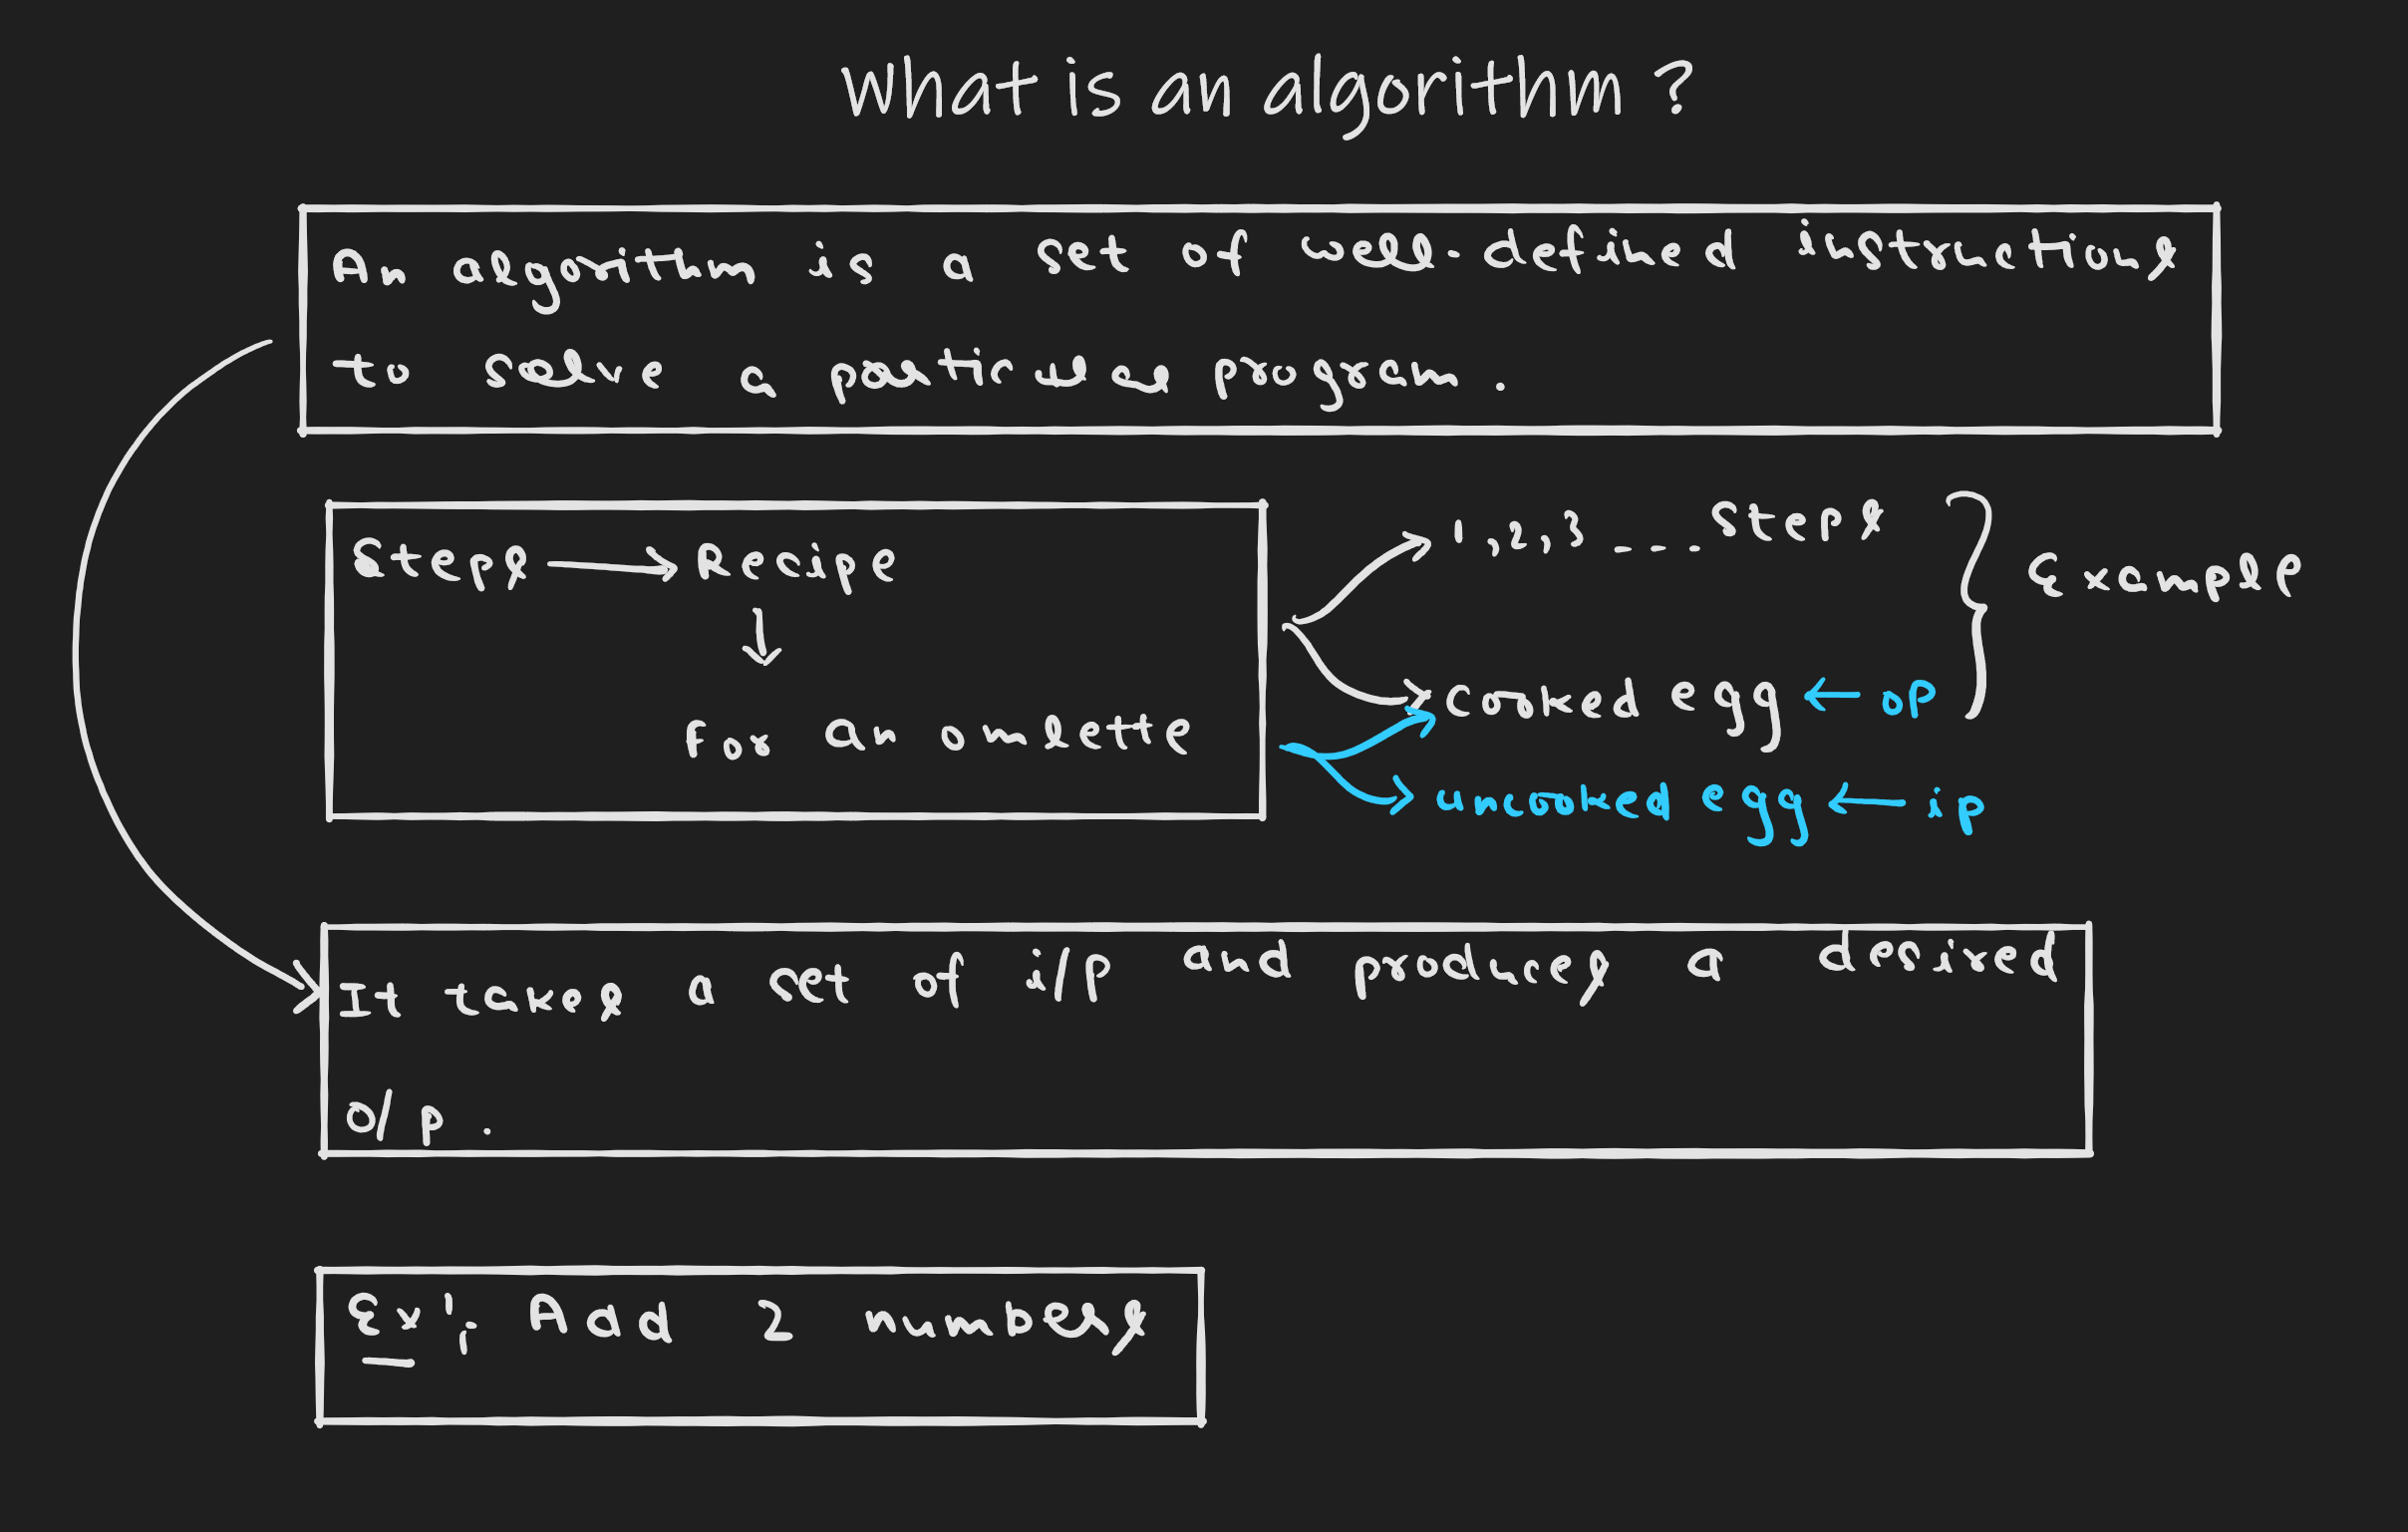 What is an algorithm ?
An algorithm is a set of well-defined instructions
to solve a particular program.
Steps → Recipe
↓
For an omlette
1, 2, 3 _ _ _ steps
Cooked egg ← op
uncooked egg ← ip
Example
It takes a set of i/p and produces a desired
O/p.
Ex: Add 2 numbers